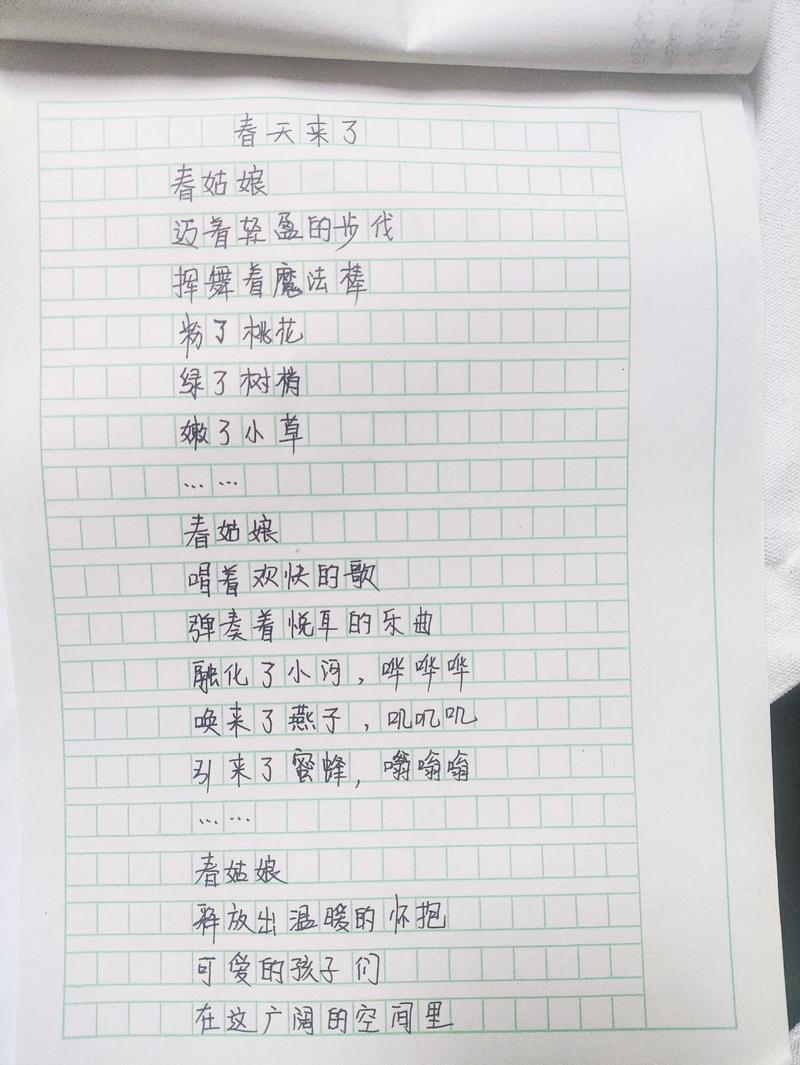 春天来了
春姑娘
迈着轻盈的步伐
挥舞着魔法棒
粉了桃花
绿了树梢
嫩了小草
……
春姑娘
唱着欢快的歌
弹奏着悦耳的乐曲
融化了小河，哗哗哗
唤来了燕子，叽叽叽
引来了蜜蜂，嗡嗡嗡
……
春姑娘
释放出温暖的怀抱
可爱的孩子们
在这广阔的空间里